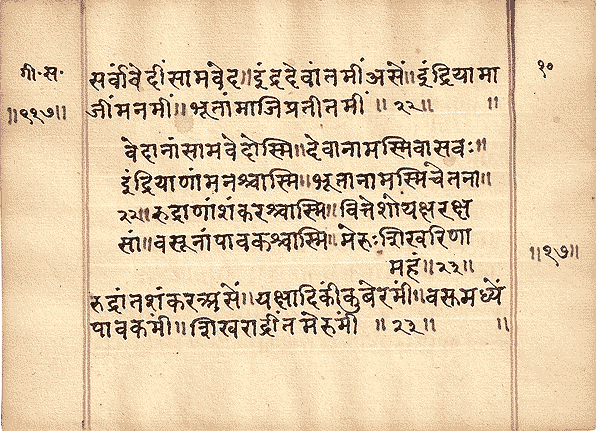 गी॰स॰
॥९१७॥
१०
सर्वांवेदींसामवेद॥इंद्रदेवांतमींअसें॥इंद्रियामा
जींमनमीं॥भूतांमाजिप्रतीतमीं॥२२॥ ॥
वेदानांसामवेदोस्मि॥देवानामस्मिवासवः॥
इंद्रियाणांमनश्चास्मि॥भूतानामस्मिंचेतना॥
२२॥रुद्राणांशंकरश्चास्मि॥वित्तेशोयक्षरक्ष
सां॥वसूनांपावकश्चास्मि॥मेरुःशिखरिणा
महं॥२३॥
॥१७॥
रुद्रांतशंकरअसें॥यक्षादिकींकुबेरमीं॥वसुमध्यें
पावकमीं॥शिखराद्रींतमेरुमीं॥२३॥ ॥